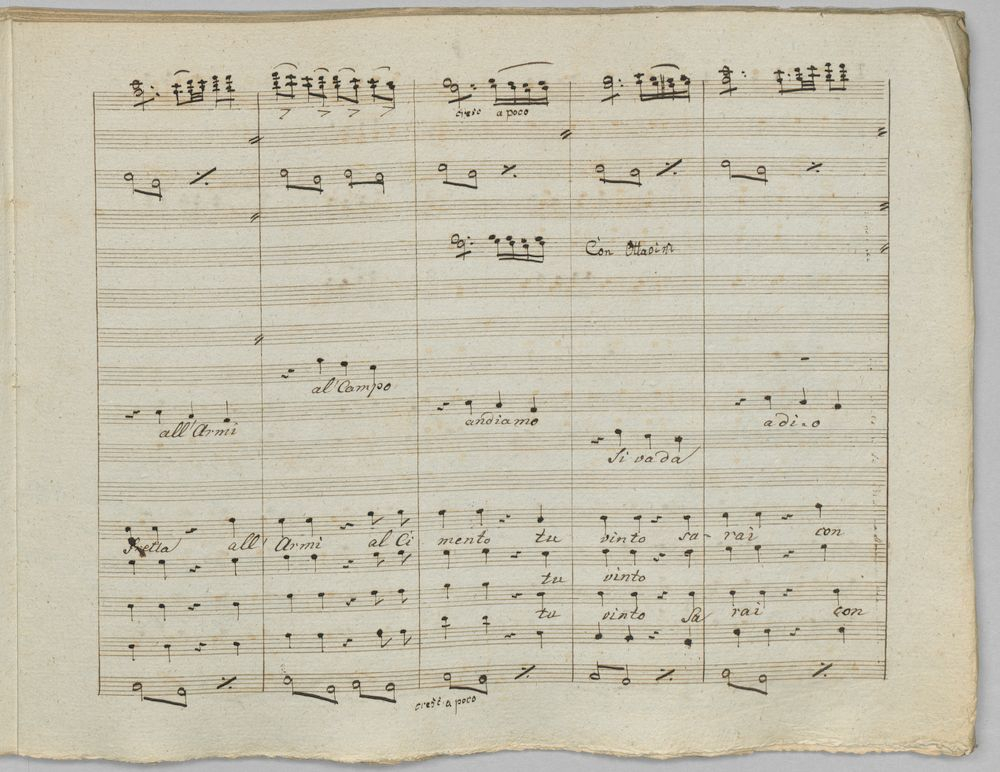 cresc a poco
Con Ottavini
al' Campo
all' Armi
andiamo
adi..o
Si vada
fretta all' Armi al Ci mento tu vinto sa- rai con
tu vinto
tu vinto Sa rai con
cresc a poco